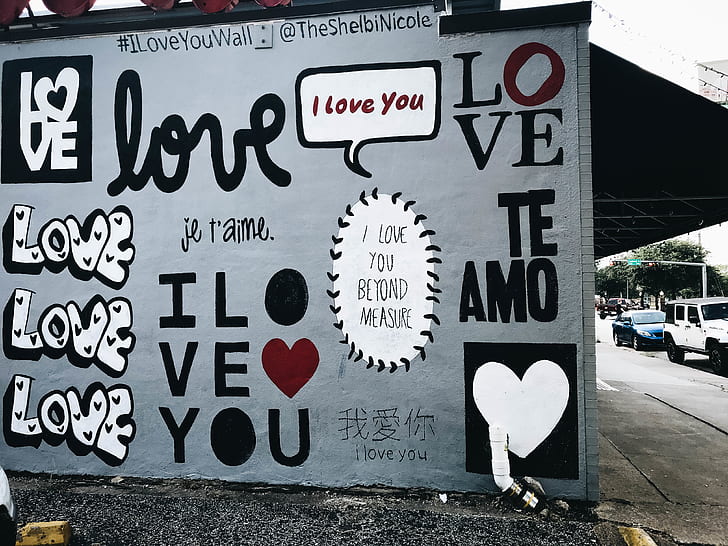 #ILoveYouWall : @TheShelbiNicole
LOVE
love
I love You
LO
VE
LOVE
LOVE
LOVE
je t'aime.
I LO
VE
YOU
I LOVE
YOU
BEYOND
MEASURE
TE
AMO
我愛你
I love you